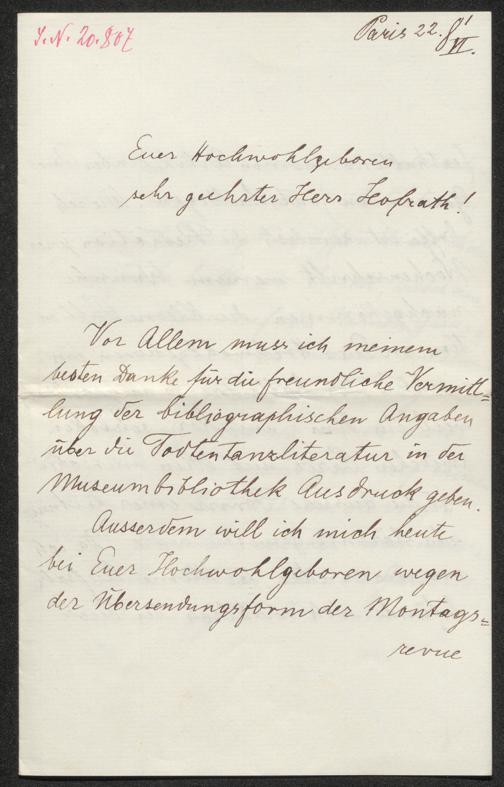 J.N. 20.807
Paris 22. 8/VI.
Euer Hochwohlgeboren
sehr geehrter Herr Hofrath!
Vor Allem muss ich meinem
besten Danke für die freundliche Vermitt=
lung der bibliographischen Angaben
über die Todtentanzliteratur in der
Museumbibliothek Ausdruck geben.
Ausserdem will ich mich heute
bei Euer Hochwohlgeboren wegen
der Übersendungsform der Montags=
revue